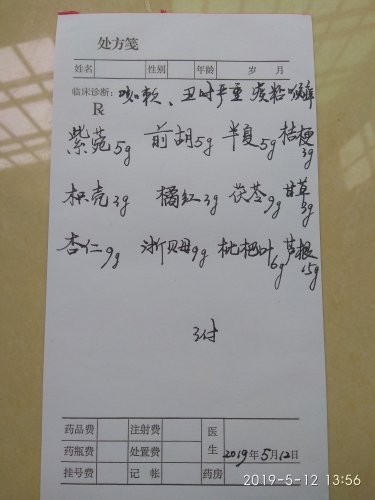 处方笺
姓名 性别 年龄 岁 月
临床诊断: 咳嗽、丑时严重 痰粘喉痒
R
紫菀5g 前胡5g 半夏5g 桔梗3g
枳壳3g 橘红3g 茯苓9g 甘草3g
杏仁9g 浙贝母9g 枇杷叶6g 芦根15g
3付
药品费 注射费 医生
药瓶费 处置费 2019年5月12日
挂号费 记帐 药房
2019-5-12 13:56